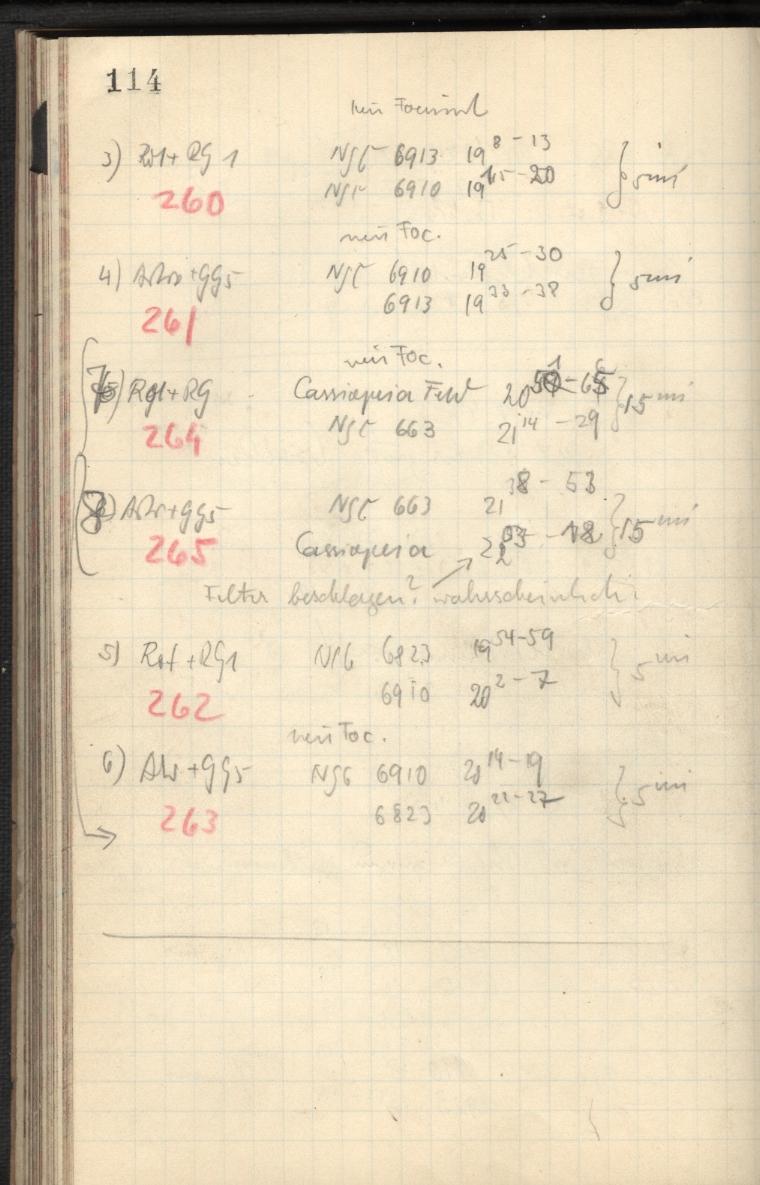 114
neu Focussiert
3) Rot + RG 1 NGC 6913 19 8 - 13
260 NGC 6910 19 15 - 20 } 5 min
neu Foc.
4) Astro + GG5 NGC 6910 19 25 - 30
6913 19 33 - 38 } 5 min
261
neu Foc.
7) Rot + RG Cassiopeia Feld 20 - 6 } 15 min
264 NGC 663 21 14 - 29
8) Astro + GG5 NGC 663 21 38 - 53
265 Cassiopeia 22 03 - 18 } 15 min
Filter beschlagen? wahrscheinlich!
5) Rot + RG1 NGC 6823 19 54-59
262 6910 20 2 - 7 } 5 min
neu Foc.
6) Astr + GG5 NGC 6910 20 14-19
263 6823 20 22-27 } 5 min